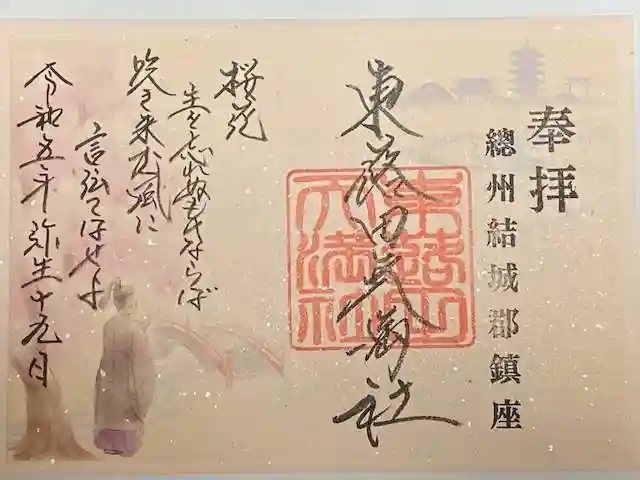 奉拝
總州結城郡鎮座
東蕗田天満社
桜花
主を忘れぬものならば
吹き来む風に
言伝てはせよ
令和五年弥生十九日
東蕗田天満社